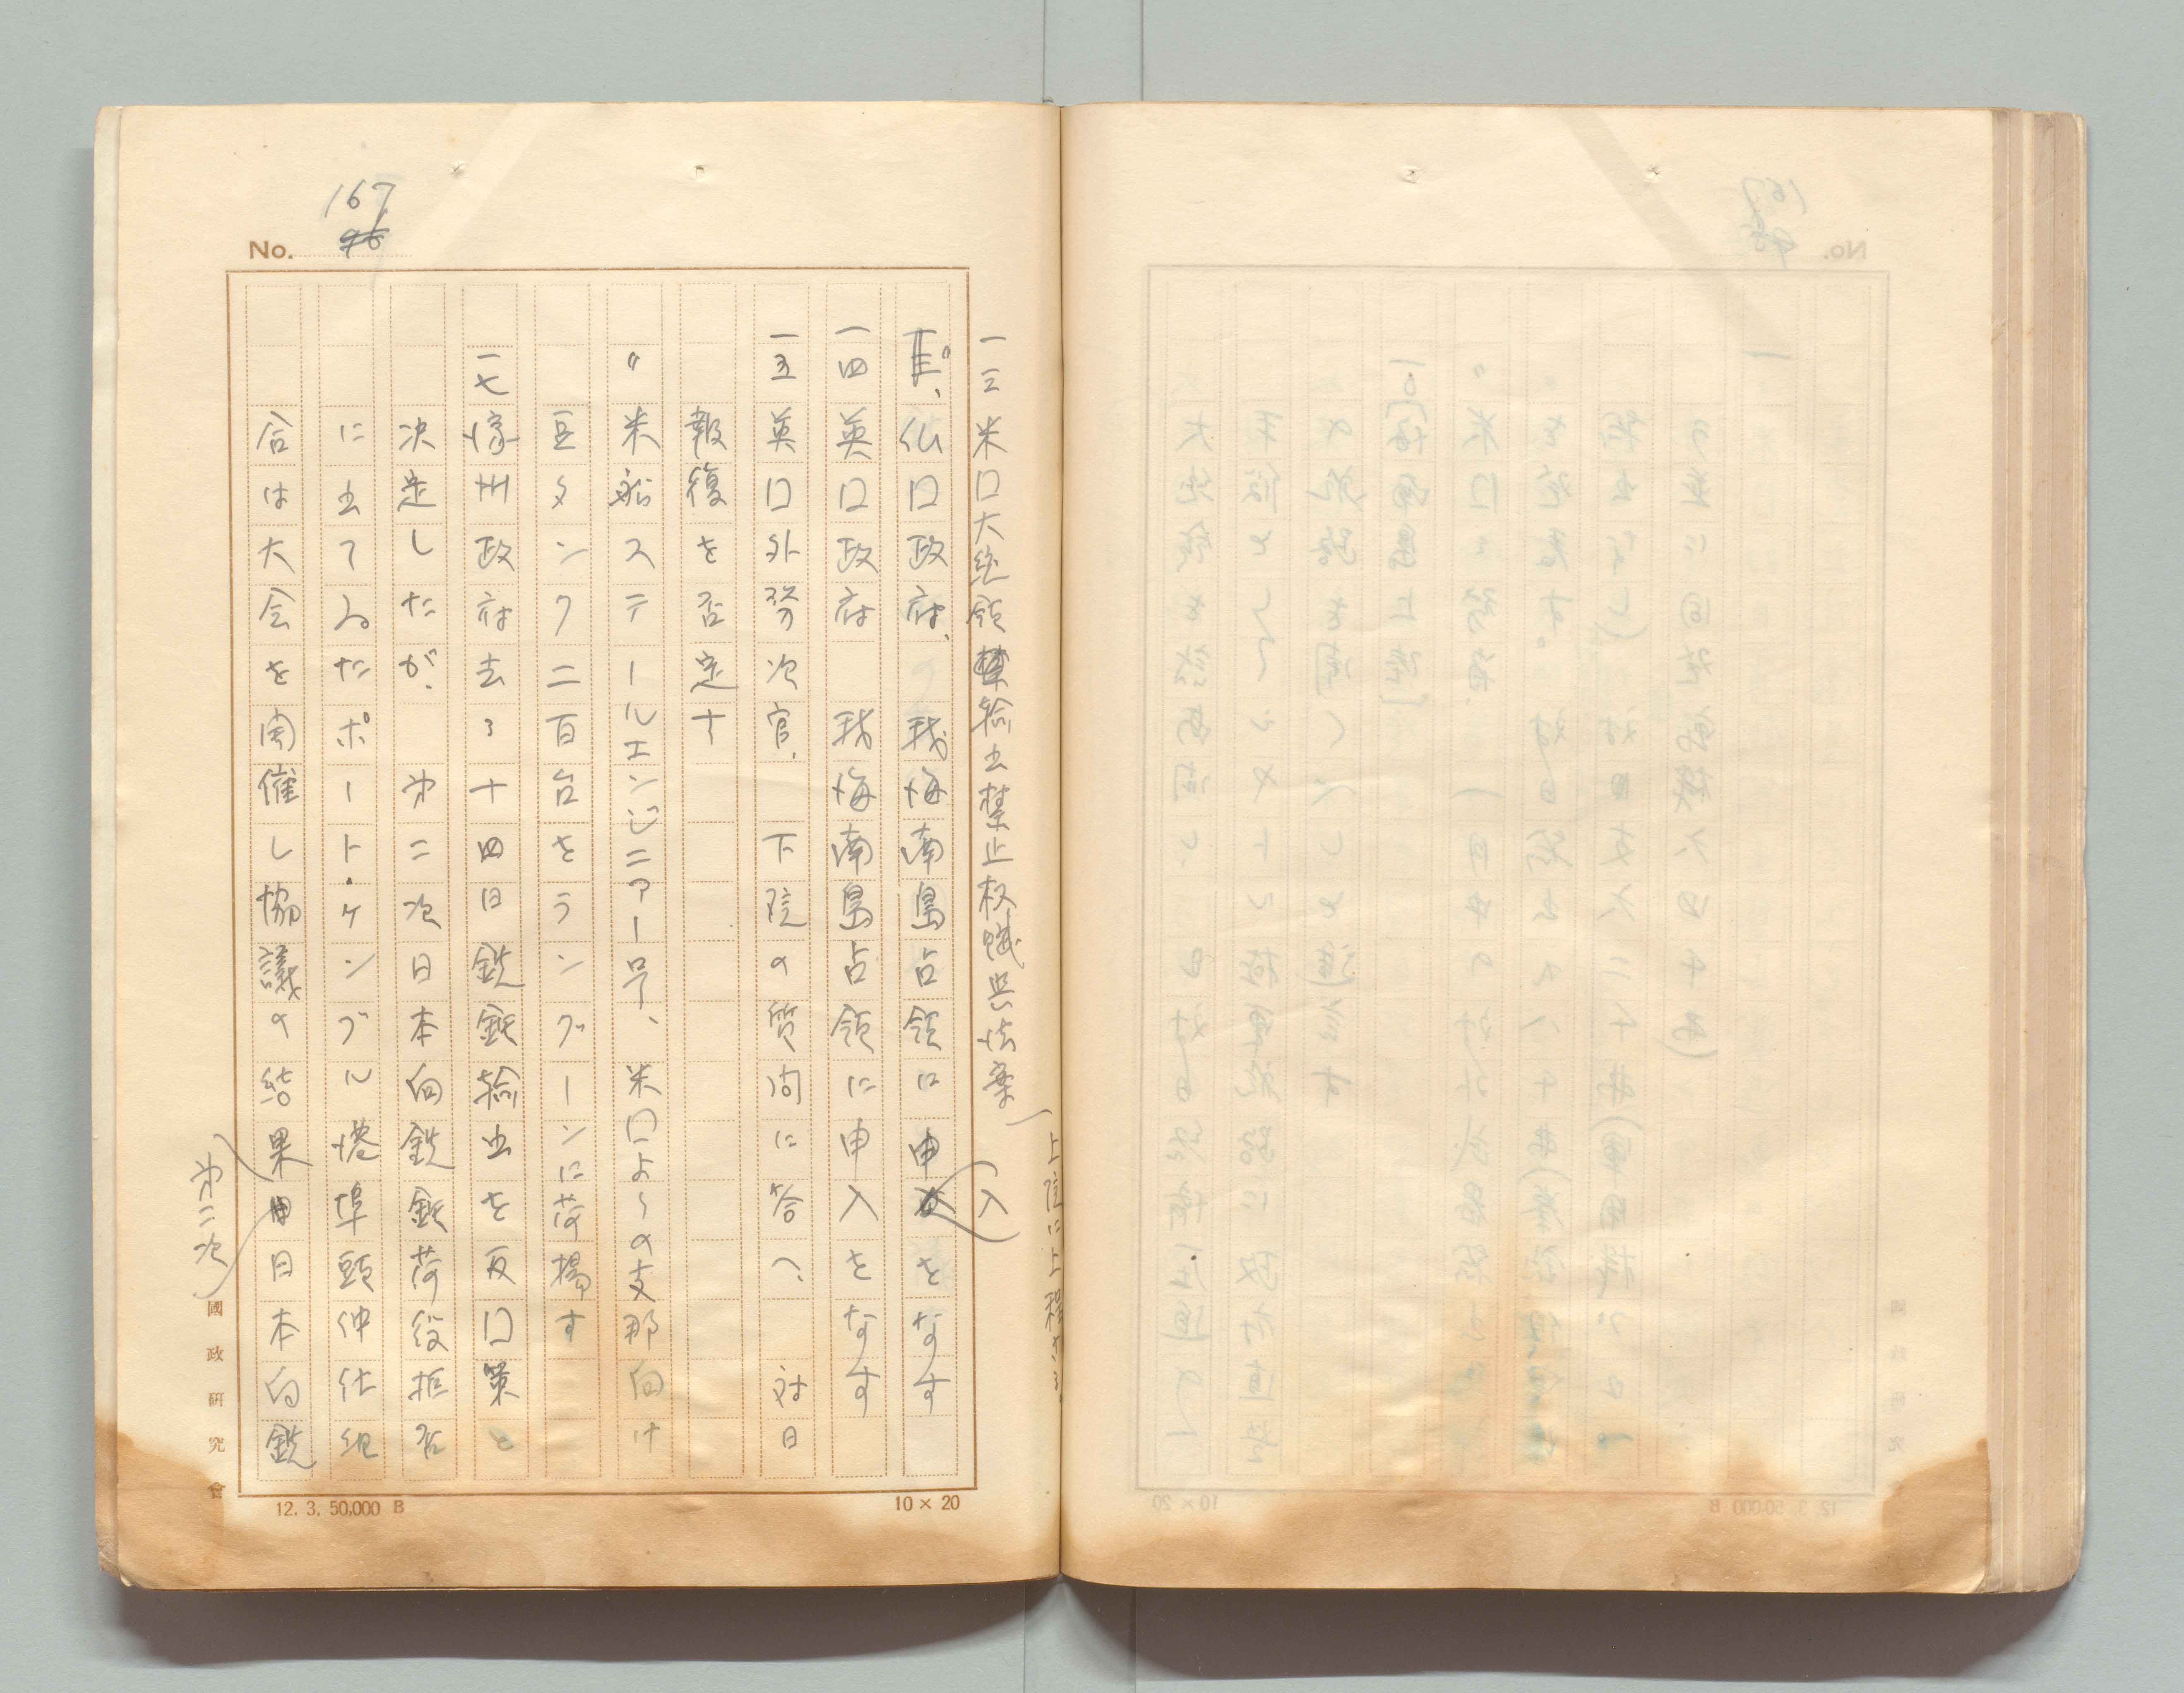 167
No. 96
一三米口大統領禁輸出禁止权賦與法案
上院に上程さる。
〃、仏口政府、我海南島占領に申入をなす
一四英口政府 我海南島占領に申入をなす
一五英口外務次官、下院の質問に答へ、対日
報復を否定す
〃米船スティールエンジニアー号、米口よりの支那向け
豆タンク二百台をラングーンに荷揚す
一七濠州政府去る十四日鉄鉱輸出を反口策と
決定したが、 第二次日本向鉄鉱荷役拒否
に出てゐたポート・ケンブル港埠頭仲仕組
合は大会を開催し協議の結果 日本向鉄
第二次
國政研究會
12. 3. 50,000 B
10×20